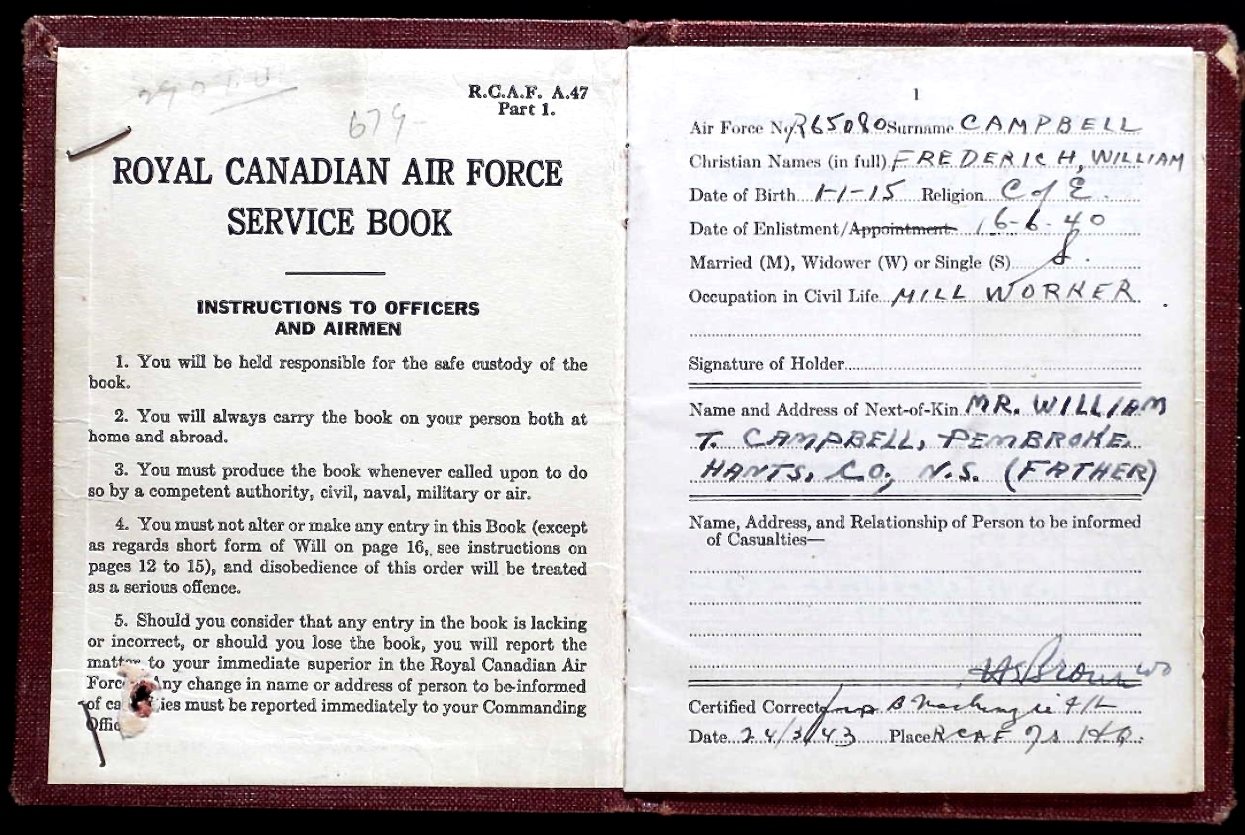 29 O.T.U.
679-
R.C.A.F. A.47
Part 1.
ROYAL CANADIAN AIR FORCE
SERVICE BOOK
INSTRUCTIONS TO OFFICERS
AND AIRMEN
1. You will be held responsible for the safe custody of the
book.
2. You will always carry the book on your person both at
home and abroad.
3. You must produce the book whenever called upon to do
so by a competent authority, civil, naval, military or air.
4. You must not alter or make any entry in this Book (except
as regards short form of Will on page 16, see instructions on
pages 12 to 15), and disobedience of this order will be treated
as a serious offence.
5. Should you consider that any entry in the book is lacking
or incorrect, or should you lose the book, you will report the
matter to your immediate superior in the Royal Canadian Air
Any change in name or address of person to be informed
of must be reported immediately to your Commanding
1
Air Force No. R65080 Surname CAMPBELL
Christian Names (in full) FREDERICH, WILLIAM
Date of Birth 1-1-15 Religion C of E.
Date of Enlistment/Appointment 16-6-40
Married (M), Widower (W) or Single (S) S.
Occupation in Civil Life MILL WORKER
Signature of Holder
Name and Address of Next-of-Kin MR. WILLIAM
T. CAMPBELL, PEMBROKE,
HANTS, CO, N.S. (FATHER)
Name, Address, and Relationship of Person to be informed
of Casualties—
Brown WO
Certified Correct B Mackenzie F/L
Date 24/3/43 Place RCAF HQ.